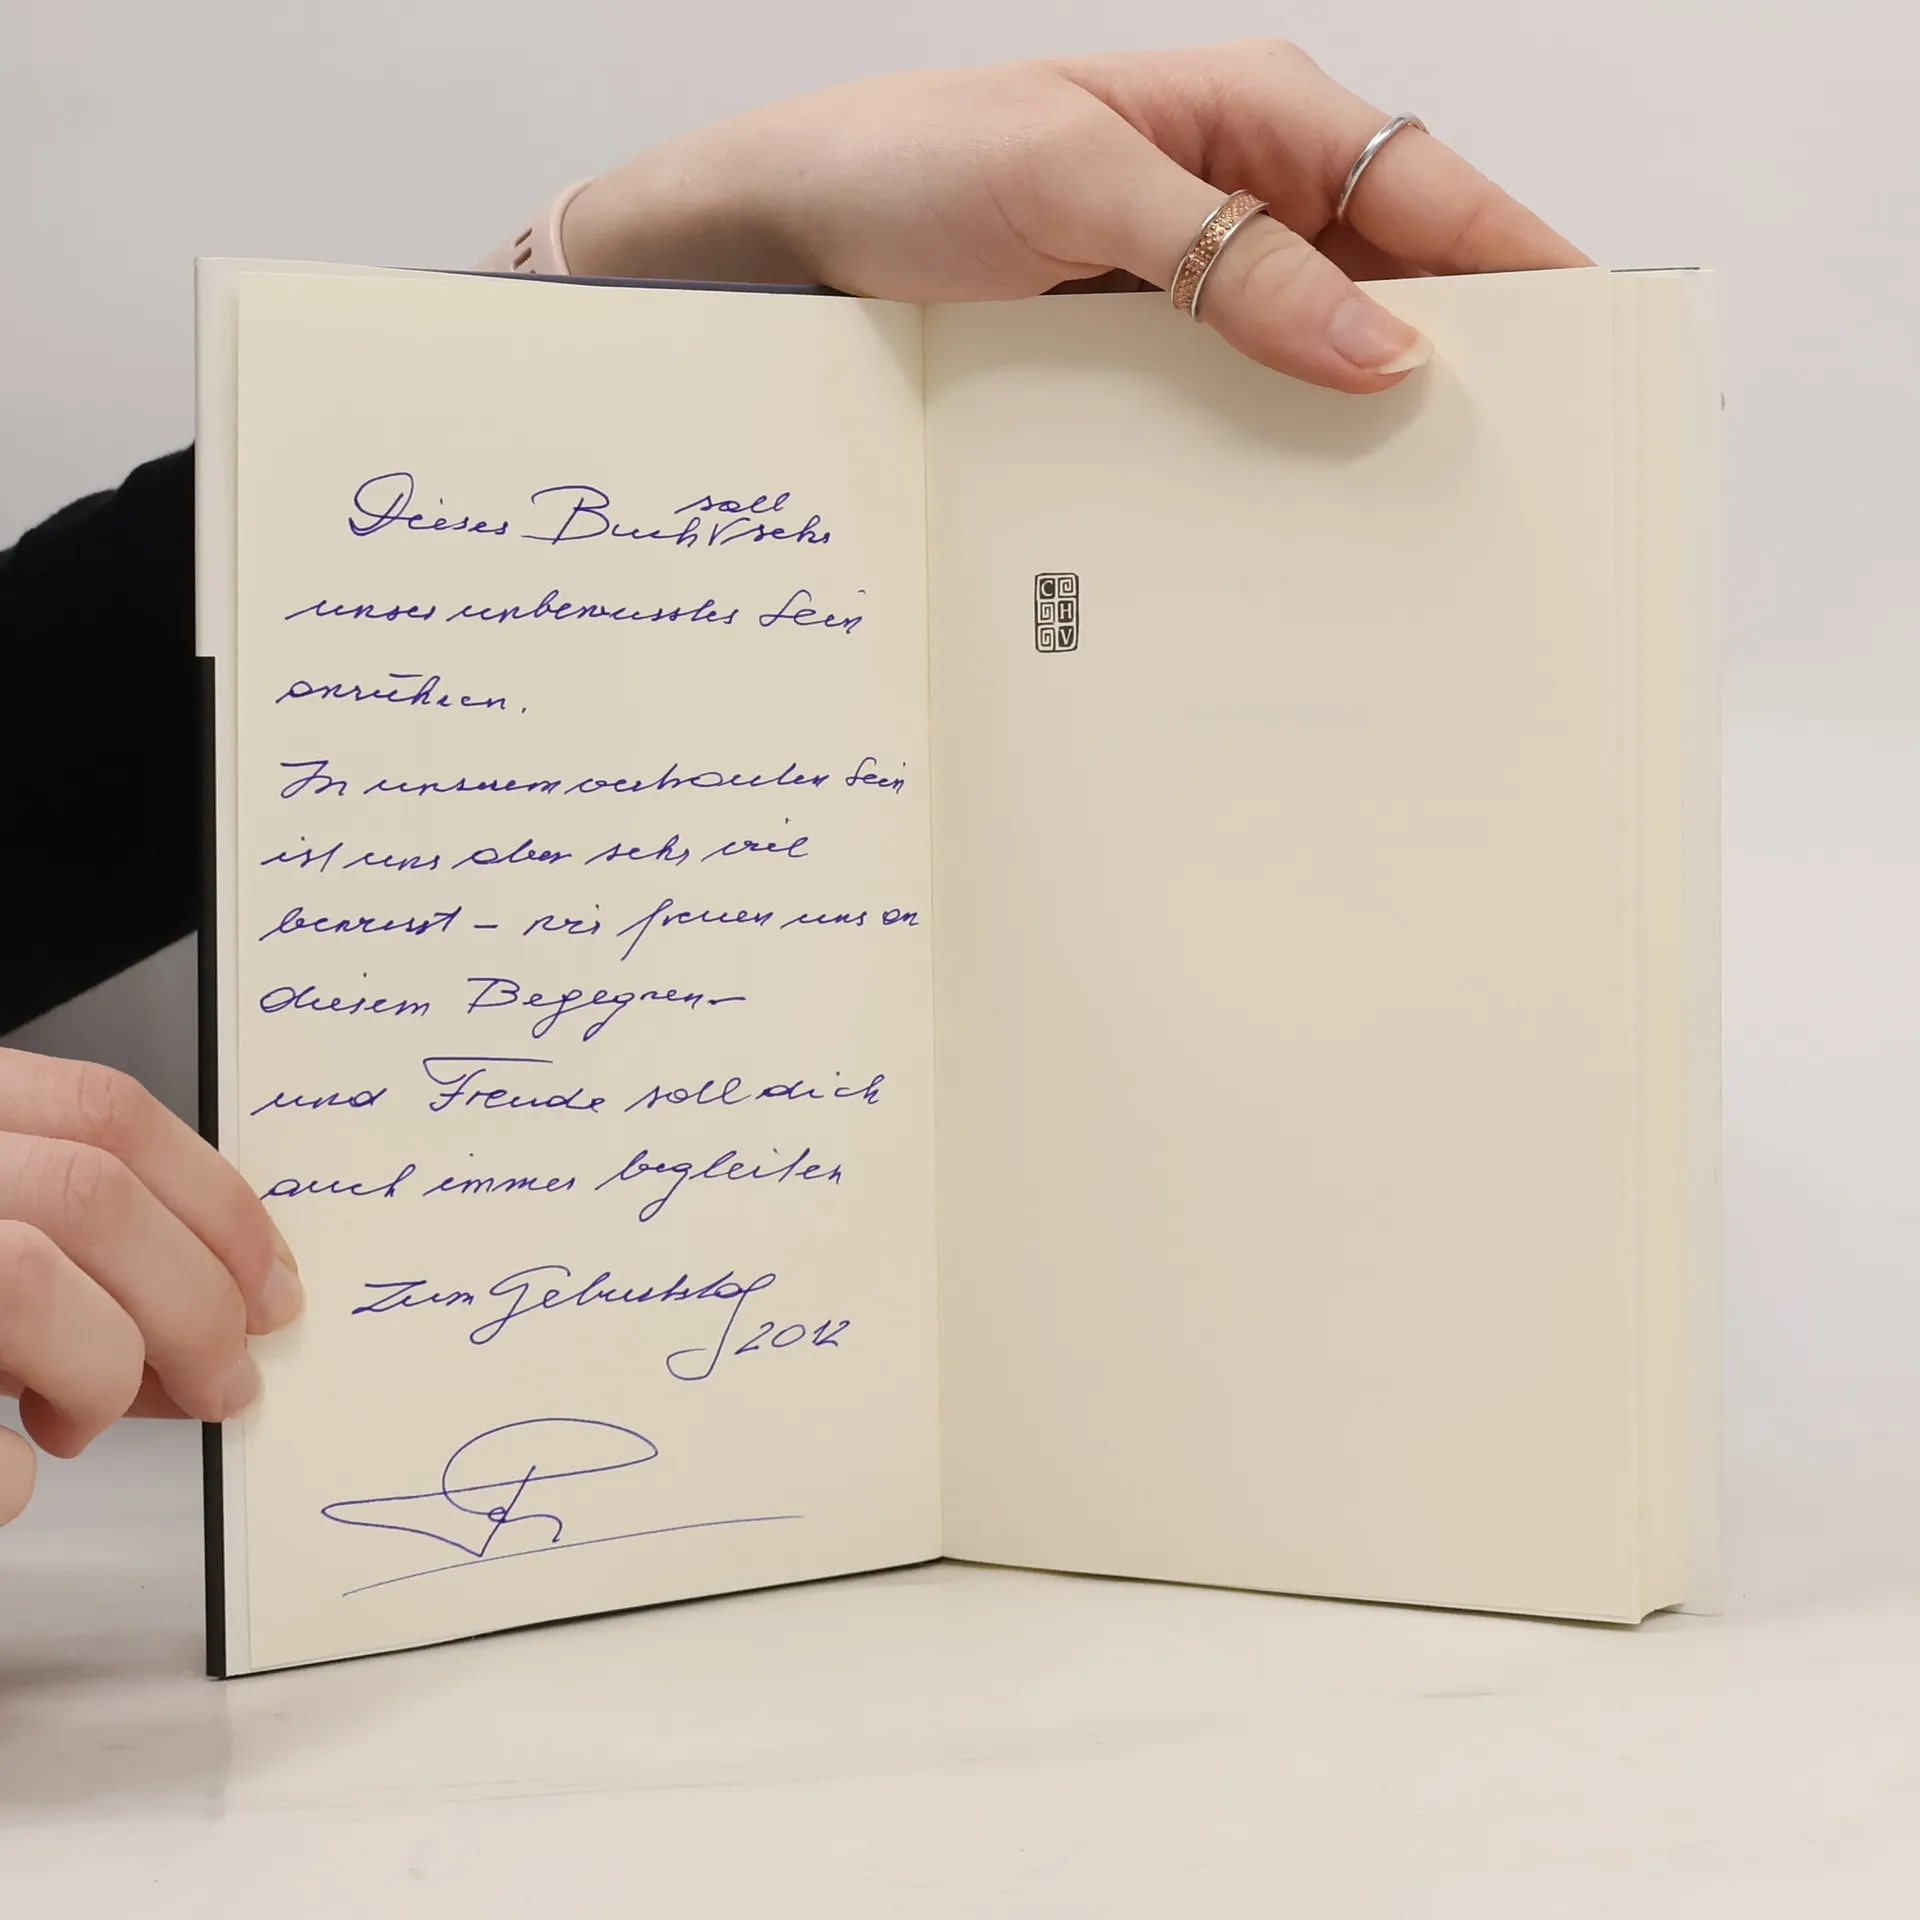 Dieses Buch soll sehr
unser unbewusstes Sein
anrühren.
In unserem vertrauten Sein
ist uns aber sehr viel
bewusst – wir freuen uns an
diesem Begegnen –
und Freude soll dich
auch immer begleiten
Zum Geburtstag
2012
C
H
V